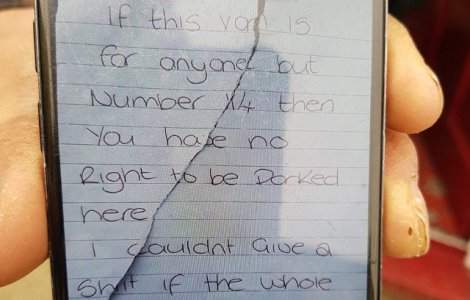 If this van is
for anyone but
Number 14 then
You have no
Right to be Parked
here
I couldnt Give a
Shit if the whole